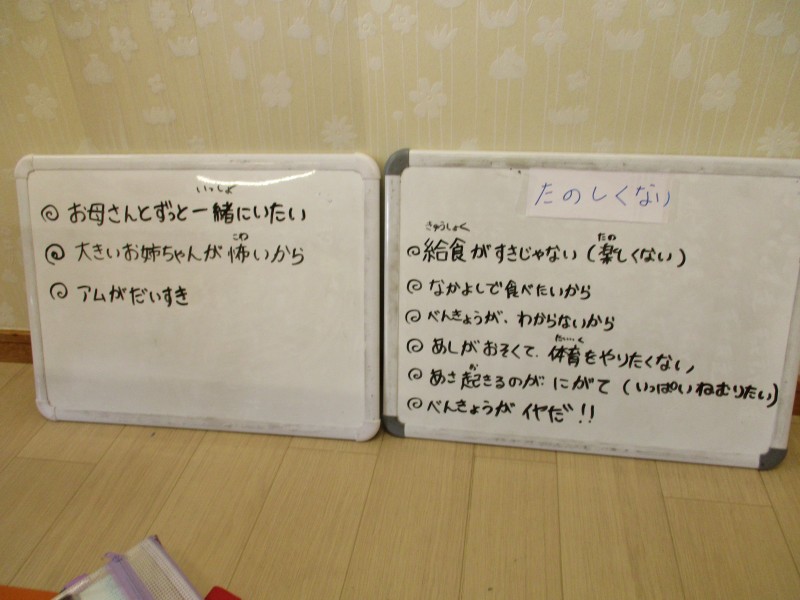 いっしょ
お母さんとずっと一緒にいたい
こわ
大きいお姉ちゃんが怖いから
アムがだいすき
たのしくない
きゅうしょく たの
給食がすきじゃない(楽しくない)
なかよしで食べたいから
べんきょうが、わからないから
たい…く
あしがおそくて、体育をやりたくない
お
あさ起きるのが にがて (いっぱいねむりたい)
べんきょうが イヤだ!!